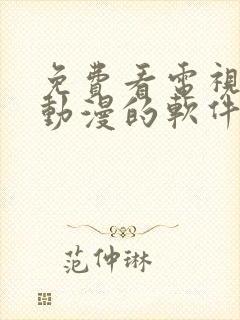 免費看電視
動漫的軟件
范仲琳